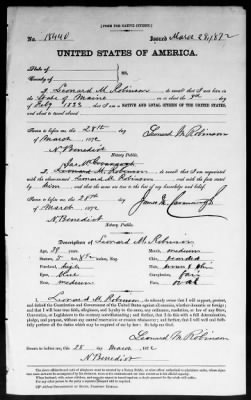 [FORM FOR NATIVE CITIZEN.]
No. 18440 Issued March 28, 1872
UNITED STATES OF AMERICA.
State of
County of } ss.
I, Leonard M. Robinson do swear that I was born in
the State of Maine on or about the 3rd day
of Feby 1833 that I am a NATIVE AND LOYAL CITIZEN OF THE UNITED STATES,
and about to travel abroad
Sworn to before me, this 28th day Leonard M Robinson
of March 1872
N P Benedict
Notary Public.
I, Jas. M. Cavanagh do swear that I am acquainted
with the above named Leonard M. Robinson and with the facts stated by
him and that the same are true to the best of my knowledge and belief.
Sworn to before me, this 28th day James M Cavanagh
of March 1872
N Benedict
Notary Public.
Description of Leonard M. Robinson
Age: 39 years,
Stature: 5 feet inches, Eng.
Forehead: high
Eyes: blue
Nose: medium
Mouth: medium
Chin: bearded
Hair:
Complexion: fair
Face: oval
I, Leonard M. Robinson do solemnly swear that I will support, protect, and
defend the Constitution and Government of the United States against all enemies, whether domestic or foreign;
and that I will bear true faith, allegiance, and loyalty to the same, any ordinance, resolution, or law of any State,
Convention, or Legislature to the contrary notwithstanding; and further, that I do this with a full determination,
pledge, and purpose, without any mental reservation or evasion whatsoever; and further, that I will well and faith-
fully perform all the duties which may be required of me by law. So help me God.
Leonard M Robinson
Sworn to before me, this 28 March 1872
N Benedict